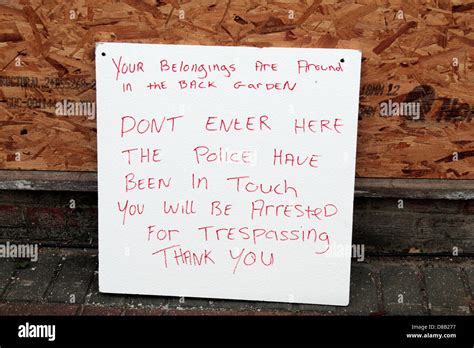 Your Belongings Are Around
in the BACK Garden
DONT ENEER HERE
THE POLiCE HAVE
BEEN IN TOUCH
YOU WiLL BE ARRESTED
FOR TRESPASSiNG
THANK YOU
alamy
D8B277
www.alamy.com